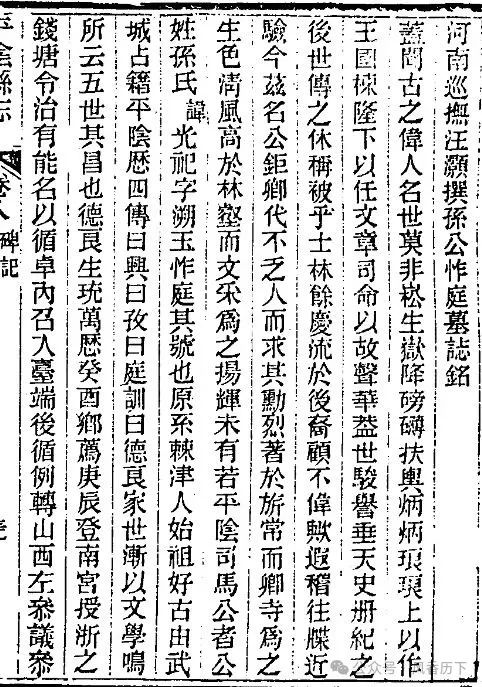 河南巡撫汪灝撰孫公怍庭墓誌銘
蓋聞古之偉人名世莫非崧生嶽降磅礴扶輿炳炳琅琅上以作
王國棟隆下以任文章司命以故聲華蓋世駿譽垂天史册紀之
後世傳之休稱被乎士林餘慶流於後裔顧不偉歟遐稽往牒近
驗今茲名公鉅卿代不乏人而求其勳烈著於旂常而卿寺爲之
生色清風高於林壑而文采爲之揚輝未有若平陰司馬公者公
姓孫氏 諱光祀字溯玉怍庭其號也原系棘津人始祖好古由武
城占籍平陰歴四傳曰興曰孜曰庭訓曰德良家世漸以文學鳴
所云五世其昌也德良生珫萬歴癸酉鄉薦庚辰登南宮授浙之
錢塘令治有能名以循卓內召入臺端後循例轉山西左叅議叅
平陰縣志 卷八 碑記
公众号 历下